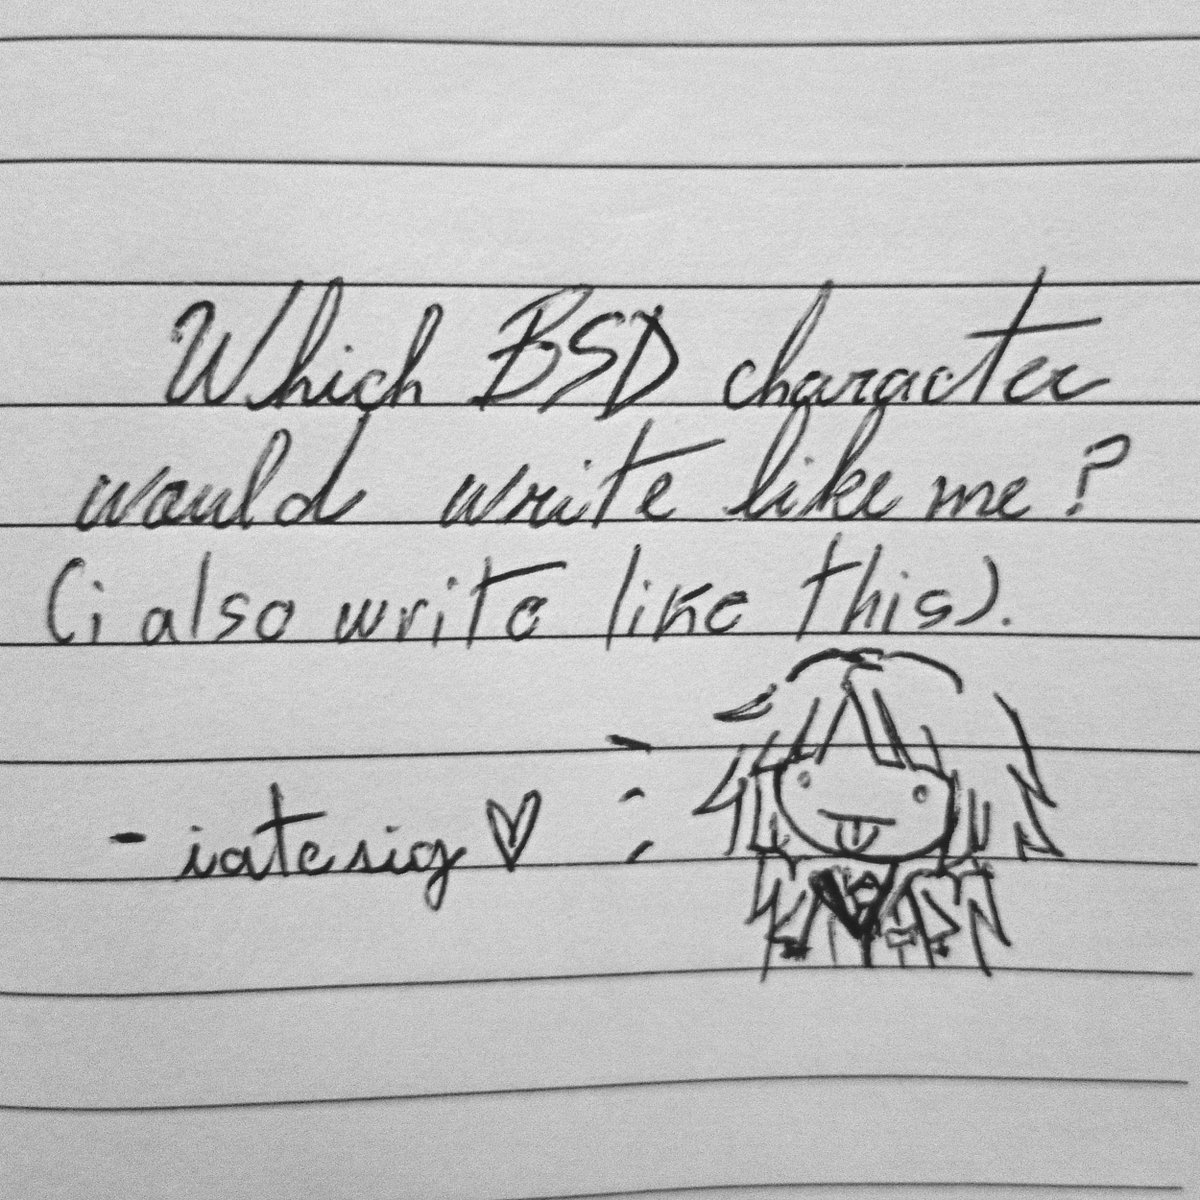 Which BSD character
would write like me?
(i also write like this).
- iatesig ♡